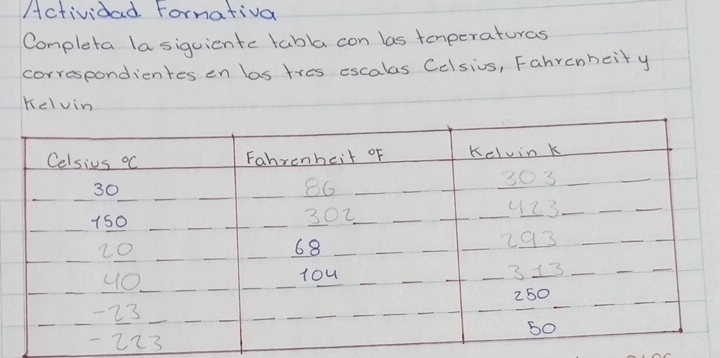 Actividad Formativa
Completa la siguiente tabla con las temperaturas
correspondientes en las tres escalas Celsius, Fahrenheit y
Kelvin
Celsius °C Fahrenheit °F Kelvin K
30 86 303
150 302 423
20 68 293
40 104 313
-23 250
-223 50